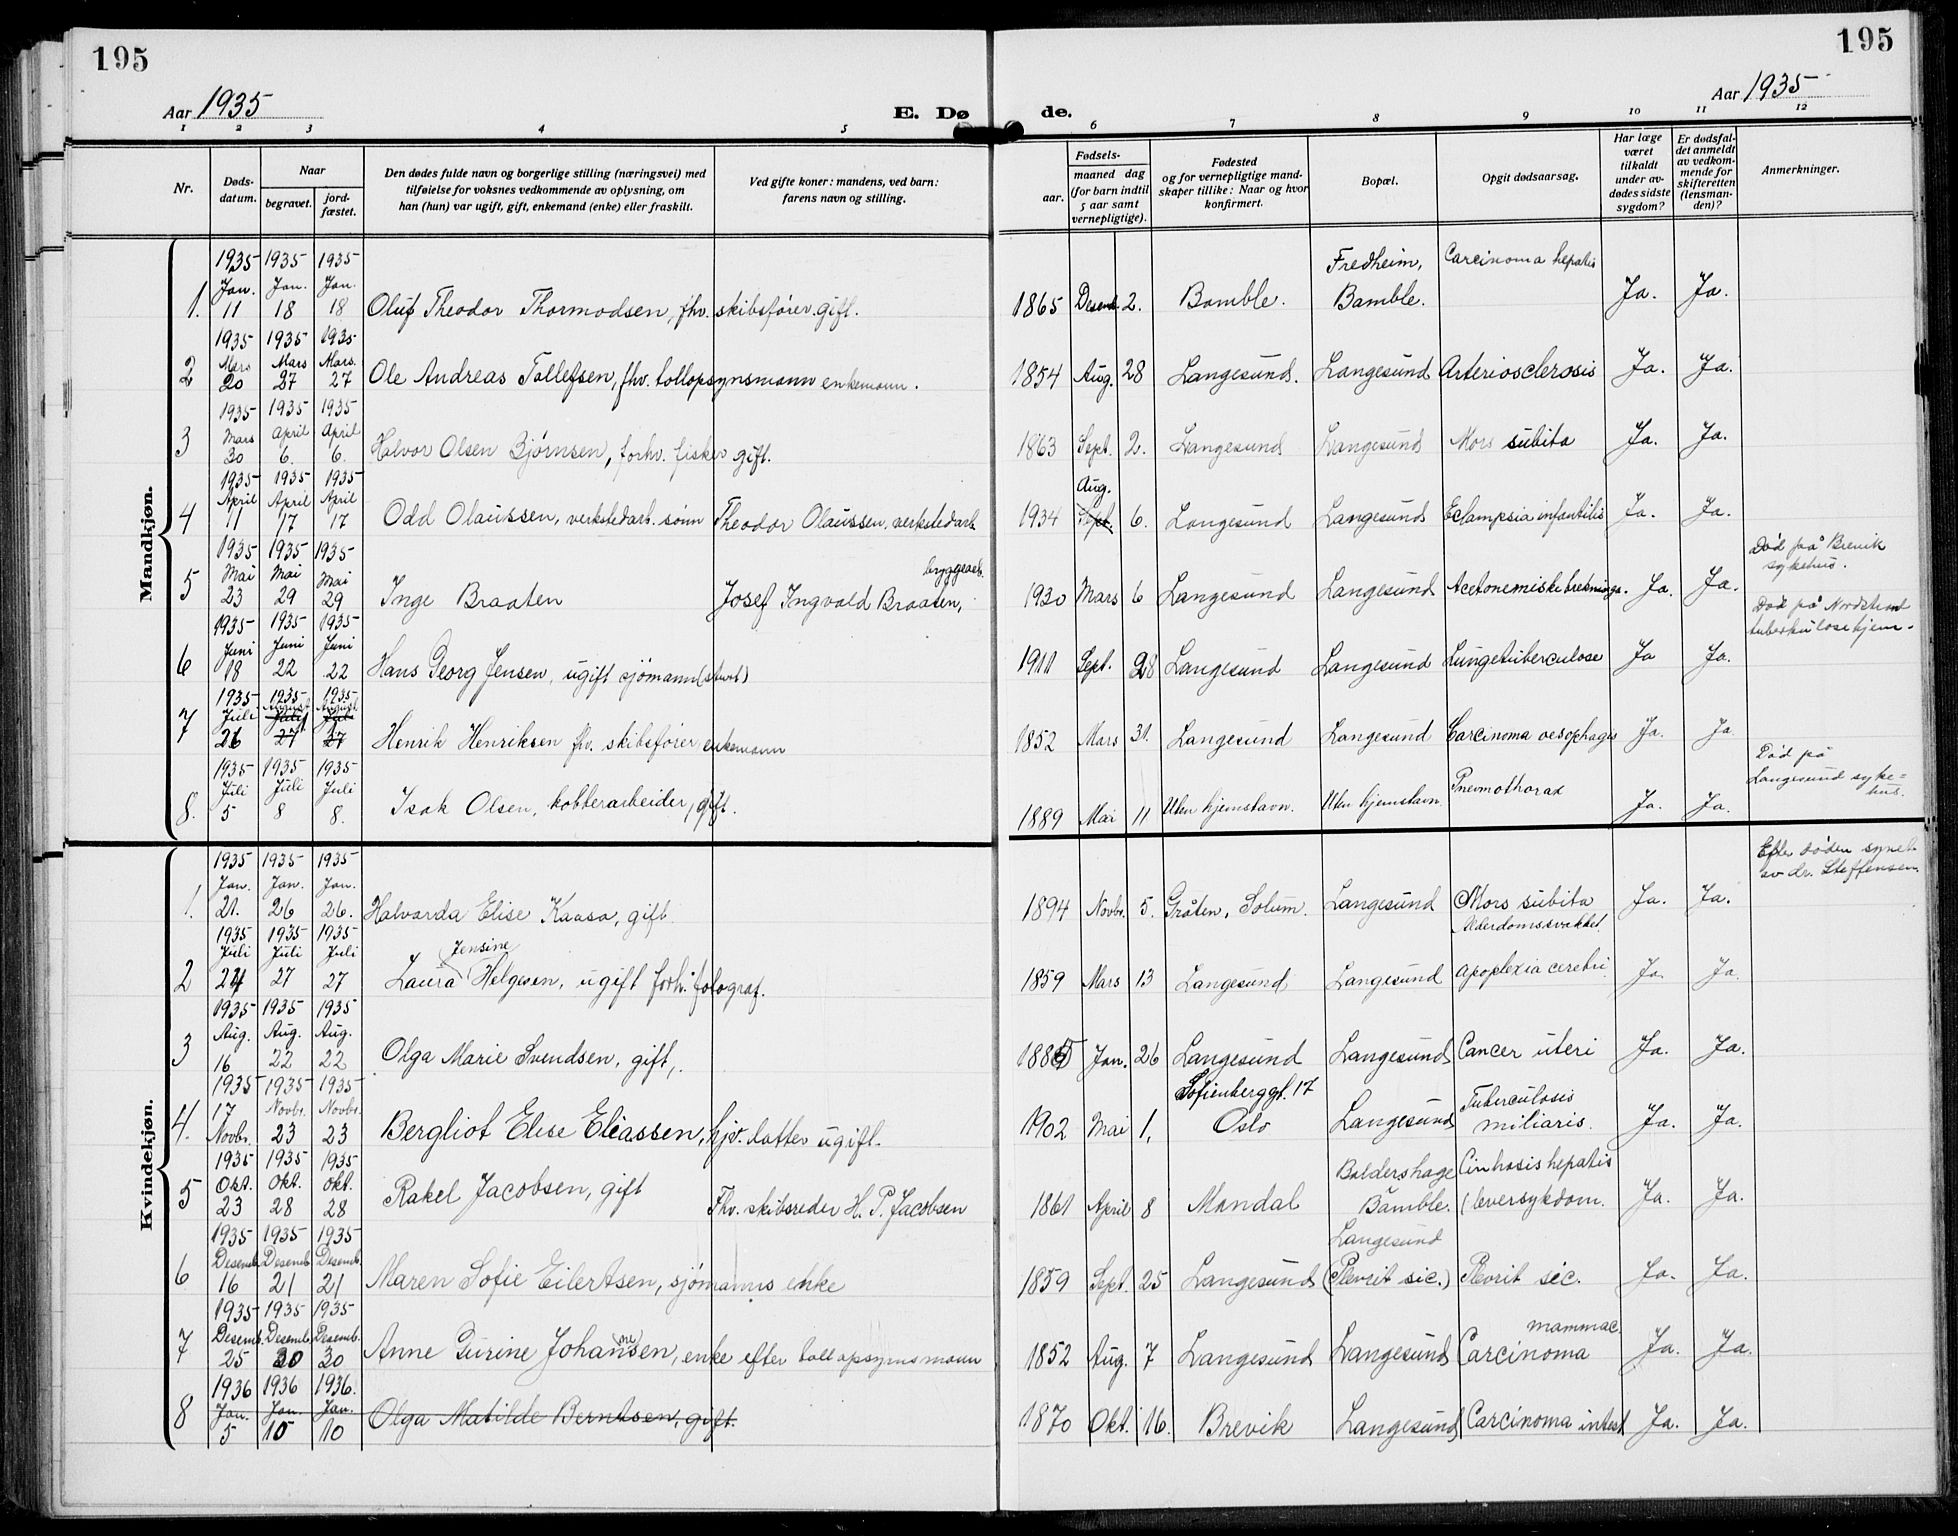 195
195
Aar 1935
E. Dø
de.
Aar 1935
1 2 3 4 5 6 7 8 9 10 11 12
Nr.
Døds-
datum.
Naar
begravet.
jord-
fæstet.
Den dødes fulde navn og borgerlige stilling (næringsvei) med
tilføielse for voksnes vedkommende av oplysning, om
han (hun) var ugift, gift, enkemand (enke) eller fraskilt.
Ved gifte koner: mandens, ved barn:
farens navn og stilling.
Fødsels-
aar.
maaned dag
(for barn indtil
5 aar samt
vernepligtige).
Fødested
og for vernepligtige mand-
skaper tillike: Naar og hvor
konfirmert.
Bopæl.
Opgit dødsaarsag.
Har læge
været
tilkaldt
under av-
dødes sidste
sygdom?
Er dødsfal-
det anmeldt
av vedkom-
mende for
skifteretten
(lensman-
den)?
Anmerkninger.
Mandkjøn.
1935 1935 1935 Fredheim, Carcinoma hepatis
Jan. Jan. Jan.
1. 11 18 18 Oluf Theodor Thormodsen, fhv. skibsfører. gift. 1865 Desemb. 2. Bamble. Bamble. Ja. Ja.
1935 1935 1935
Mars Mars Mars.
2 20 27 27 Ole Andreas Tollefsen, fhv. tollopsynsmann enkemann. 1854 Aug. 28 Langesund. Langesund Arteriosclerosis Ja. Ja.
1935 1935 1935
Mars April April
3 30 6. 6. Halvor Olsen Bjørnsen, forhv. fisker gift. 1863 Sept. 2. Langesund Langesund Mors subita Ja. Ja.
1935 1935 1935 Aug.
April April April
4 11 17 17 Odd Olaussen, verkstedarb. sønn Theodor Olaussen, verkstedarb. 1934 Sept. 6. Langesund Langesund Eclampsia infantilis Ja. Ja.
1935 1935 1935 Død på Brevik
Mai Mai Mai bryggearb. sykehus.
5 23 29 29 Inge Braaten Josef Ingvald Braaten, 1930 Mars 6 Langesund Langesund Acetonemiske Ja. Ja.
1935 1935 1935 Død på Nordstrand
Juni Juni Juni tuberkulosehjem.
6 18 22 22 Hans Georg Jensen, ugift sjømann (stuert) 1911 Sept. 28 Langesund Langesund Lungetuberculose Ja Ja.
1935 1935 1935
August August
Juli Juli Juli
7 26 27 27 Henrik Henriksen fhv. skibsfører, enkemann 1852 Mars 31. Langesund Langesund Carcinoma oesophagis Ja. Ja
1935 1935 1935 Død på
Juli Juli Juli Pneumothorax Langesund syke-
8. 5 8 8. Isak Olsen, kobberarbeider, gift. 1889 Mai 11 Uten hjemstavn. Uten hjemstavn. Ja. Ja. hus.
Kvindekjøn.
1935 1935 1935 Efter døden synet
Jan. Jan. Jan. av dr. Steffensen.
1. 21. 26 26. Halvarda Elise Kaasa, gift 1894 Novbr. 5. Gråten, Solum. Langesund Mors subita Ja. Ja.
1935 1935 1935 Alderdomssvakhet.
Juli Juli Juli Jensine
2 24 27 27 Laura Helgesen, ugift forhv. fotograf. 1859 Mars 13 Langesund Langesund apoplexia cerebri Ja. Ja.
1935 1935 1935
Aug. Aug. Aug.
3 16 22 22 Olga Marie Svendsen, gift, Jan. 26 Langesund Langesund Cancer uteri Ja. Ja.
1935 1935 1935 Sofienberggt. 17 Tuberculosis
17 Novbr. Novbr.
4. Novbr. 23 23 Bergliot Elise Eliassen, hjv. datter ugift. 1902 Mai 1, Oslo Langesund miliaris. Ja. Ja.
1935 1935 1935 Baldershage Cirrhosis hepatis
Okt. Okt. Okt.
5 23 28 28 Rakel Jacobsen, gift Fhv. skibsreder H. P. Jacobsen 1861 April 8 Mandal Bamble. (leversykdom. Ja. Ja.
1935 1935 1935 Langesund
Desemb. Desemb. Desemb.
6 16 21 21 Maren Sofie Eilertsen, sjømanns enke 1859 Sept. 25 Langesund (Plevrit sic.) Plevrit sic. Ja. Ja.
1935 1935 1935 mammae
Desemb. Desemb. Desemb. ne
7 25 30 30 Anne Gurine Johansen, enke efter tollopsynsmann 1852 Aug. 7 Langesund Langesund Carcinoma Ja. Ja.
1936 1936 1936.
Jan. Jan. Jan.
8 5 10 10 Olga Matilde Berntsen, gift. 1870 Okt. 16. Brevik Langesund Carcinoma intest Ja. Ja.